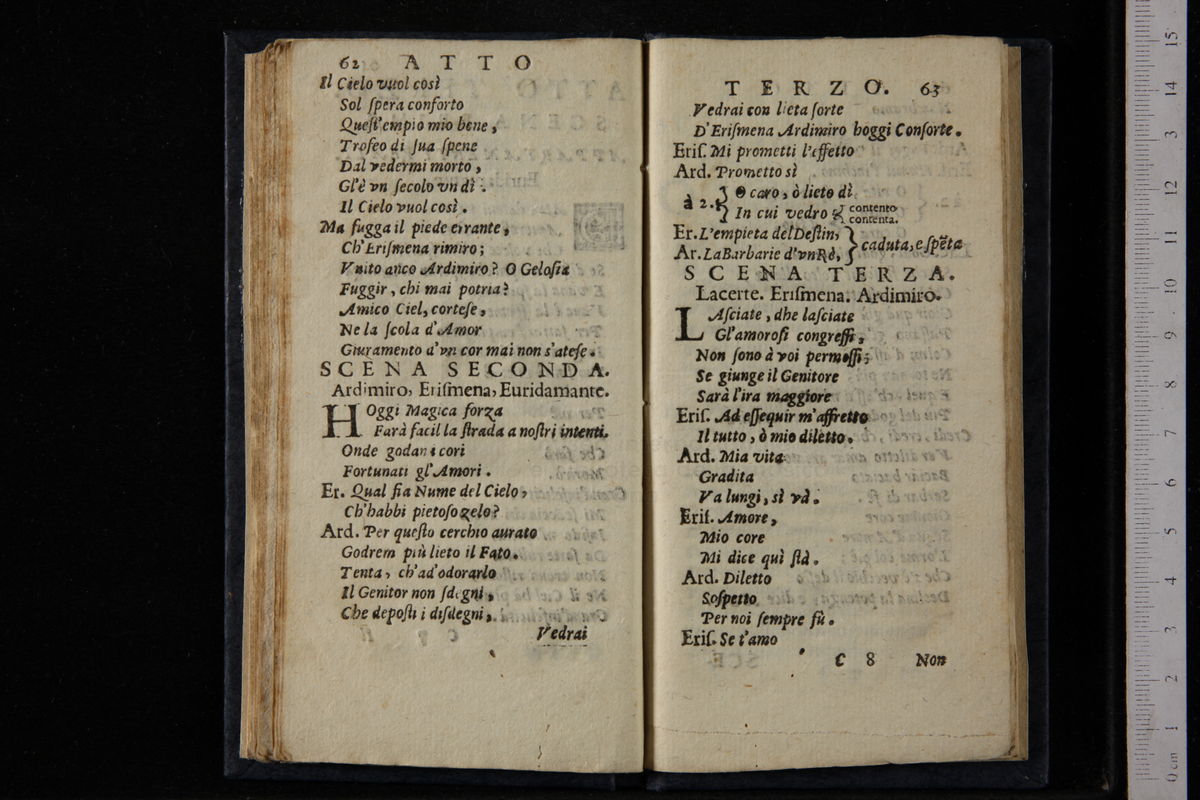 62 ATTO
Il Cielo vuol così
Sol ſpera conforto
Queſt'empio mio bene,
Trofeo di ſua ſpene
Dal vedermi morto,
Gl'è vn ſecolo vn dì.
Il Cielo vuol così.
Ma fugga il piede errante,
Ch'Eriſmena rimiro;
Vnito anco Ardimiro? O Geloſia
Fuggir, chi mai potria?
Amico Ciel, corteſe,
Ne la ſcola d'Amor
Giuramento d'vn cor mai non s'ateſe.
SCENA SECONDA.
Ardimiro, Eriſmena, Euridamante.
HOggi Magica forza
Farà facil la ſtrada a noſtri intenti.
Onde godan i cori
Fortunati gl'Amori.
Er. Qual ſia Nume del Cielo,
Ch'habbi pietoſo zelo?
Ard. Per queſto cerchio aurato
Godrem più lieto il Fato.
Tenta, ch'ad'odorarlo
Il Genitor non ſdegni,
Che depoſti i diſdegni,
Vedrai
TERZO. 63
Vedrai con lieta ſorte
D'Eriſmena Ardimiro hoggi Conſorte.
Eriſ. Mi prometti l'effetto
Ard. Prometto sì
à 2. { O caro, ò lieto dì
In cui vedro { contento
contenta.
Er. L'empieta del Deſtin,
Ar. La Barbarie d'vn Rè, } caduta, e ſpẽta
SCENA TERZA.
Lacerte. Eriſmena. Ardimiro.
LAſciate, dhe laſciate
Gl'amoroſi congreſſi,
Non ſono à voi permeſſi;
Se giunge il Genitore
Sarà l'ira maggiore
Eriſ. Ad eſſequir m'affretto
Il tutto, ò mio diletto.
Ard. Mia vita
Gradita
Va lungi, sì và.
Eriſ. Amore,
Mio core
Mi dice quì ſtà.
Ard. Diletto
Soſpetto
Per noi ſempre fù.
Eriſ. Se t'amo
C 8 Non